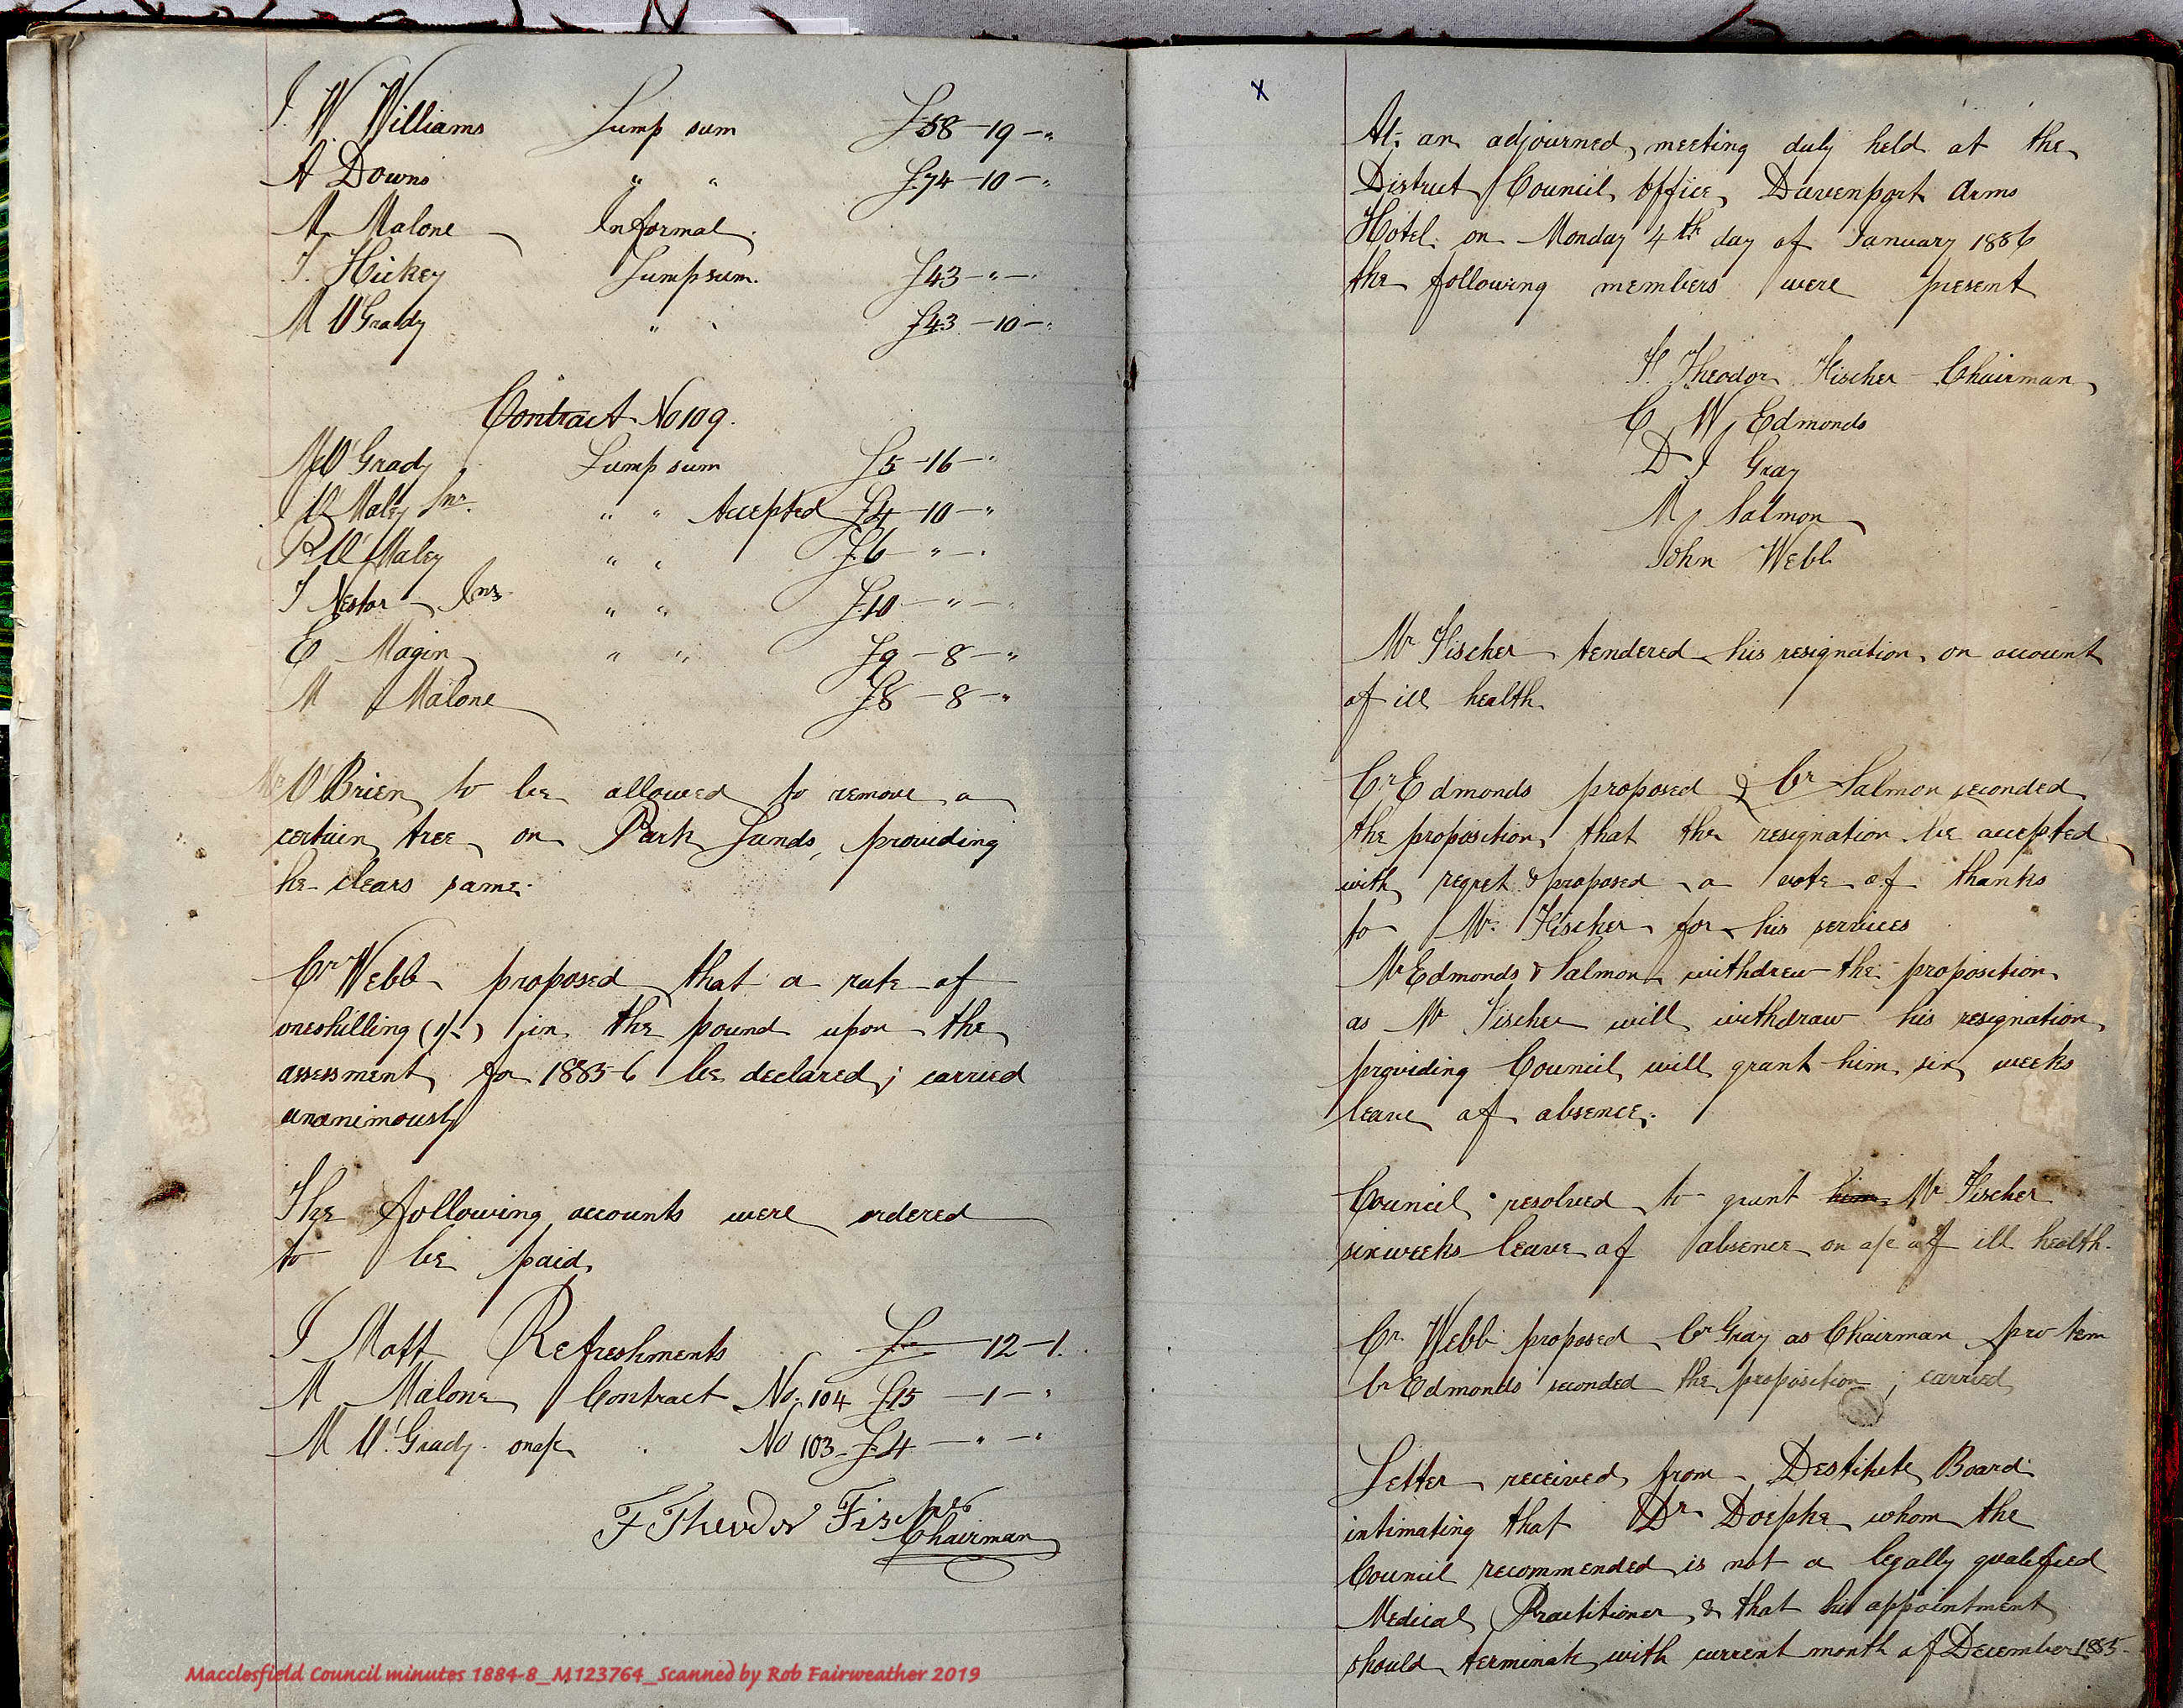 J. W. Williams Lump sum £58-19-"
A Downs " " £74-10-"
M Malone Informal.
T. Hickey Lump sum. £43-"-"
M O'Grady " " £43-10-"
Contract No 109.
M O'Grady Lump sum £5-16-"
J O'Maley Snr. " " Accepted £4-10-"
P O'Maley " " £6-"-"
J Nestor " " £10-"-"
E Magin " " £9-8-"
M Malone £8-8-"
Mr O'Brien to be allowed to remove a
certain tree on Park Lands, providing
he clears same.
Cr Webb proposed that a rate of
one shilling (1/-) in the pound upon the
assessment for 1885-6 be declared; carried
unanimously
The following accounts were ordered
to be paid.
J Mott Refreshments £-12-1.
M Malone Contract No. 104 £15-1-"
M O'Grady on a/c " No 103 £4-"-"
F Theodor Fischer
Chairman
Macclesfield Council minutes 1884-8_M123764_Scanned by Rob Fairweather 2019
x
At an adjourned meeting duly held at the
District Council Office, Davenport Arms
Hotel. on Monday 4th day of January 1886
the following members were present
F. Theodor Fischer Chairman
C W Edmonds
D J Gray
M Salmon
John Webb
Mr Fischer tendered his resignation on account
of ill health.
Cr Edmonds proposed & Cr Salmon seconded
the proposition that the resignation be accepted
with regret & proposed a vote of thanks
to Mr. Fischer for his services
Mr Edmonds & Salmon withdrew the proposition
as Mr Fischer will withdraw his resignation
providing Council will grant him six weeks
leave of absence.
Council resolved to grant him Mr Fischer
six weeks leave of absence on a/c of ill health.
Cr. Webb proposed Cr Gray as Chairman pro tem
Cr Edmonds seconded the proposition; carried
Letter received from Destitute Board
intimating that Dr Doepke whom the
Council recommended is not a legally qualified
Medical Practitioner & that his appointment
should terminate with current month of December 1885.